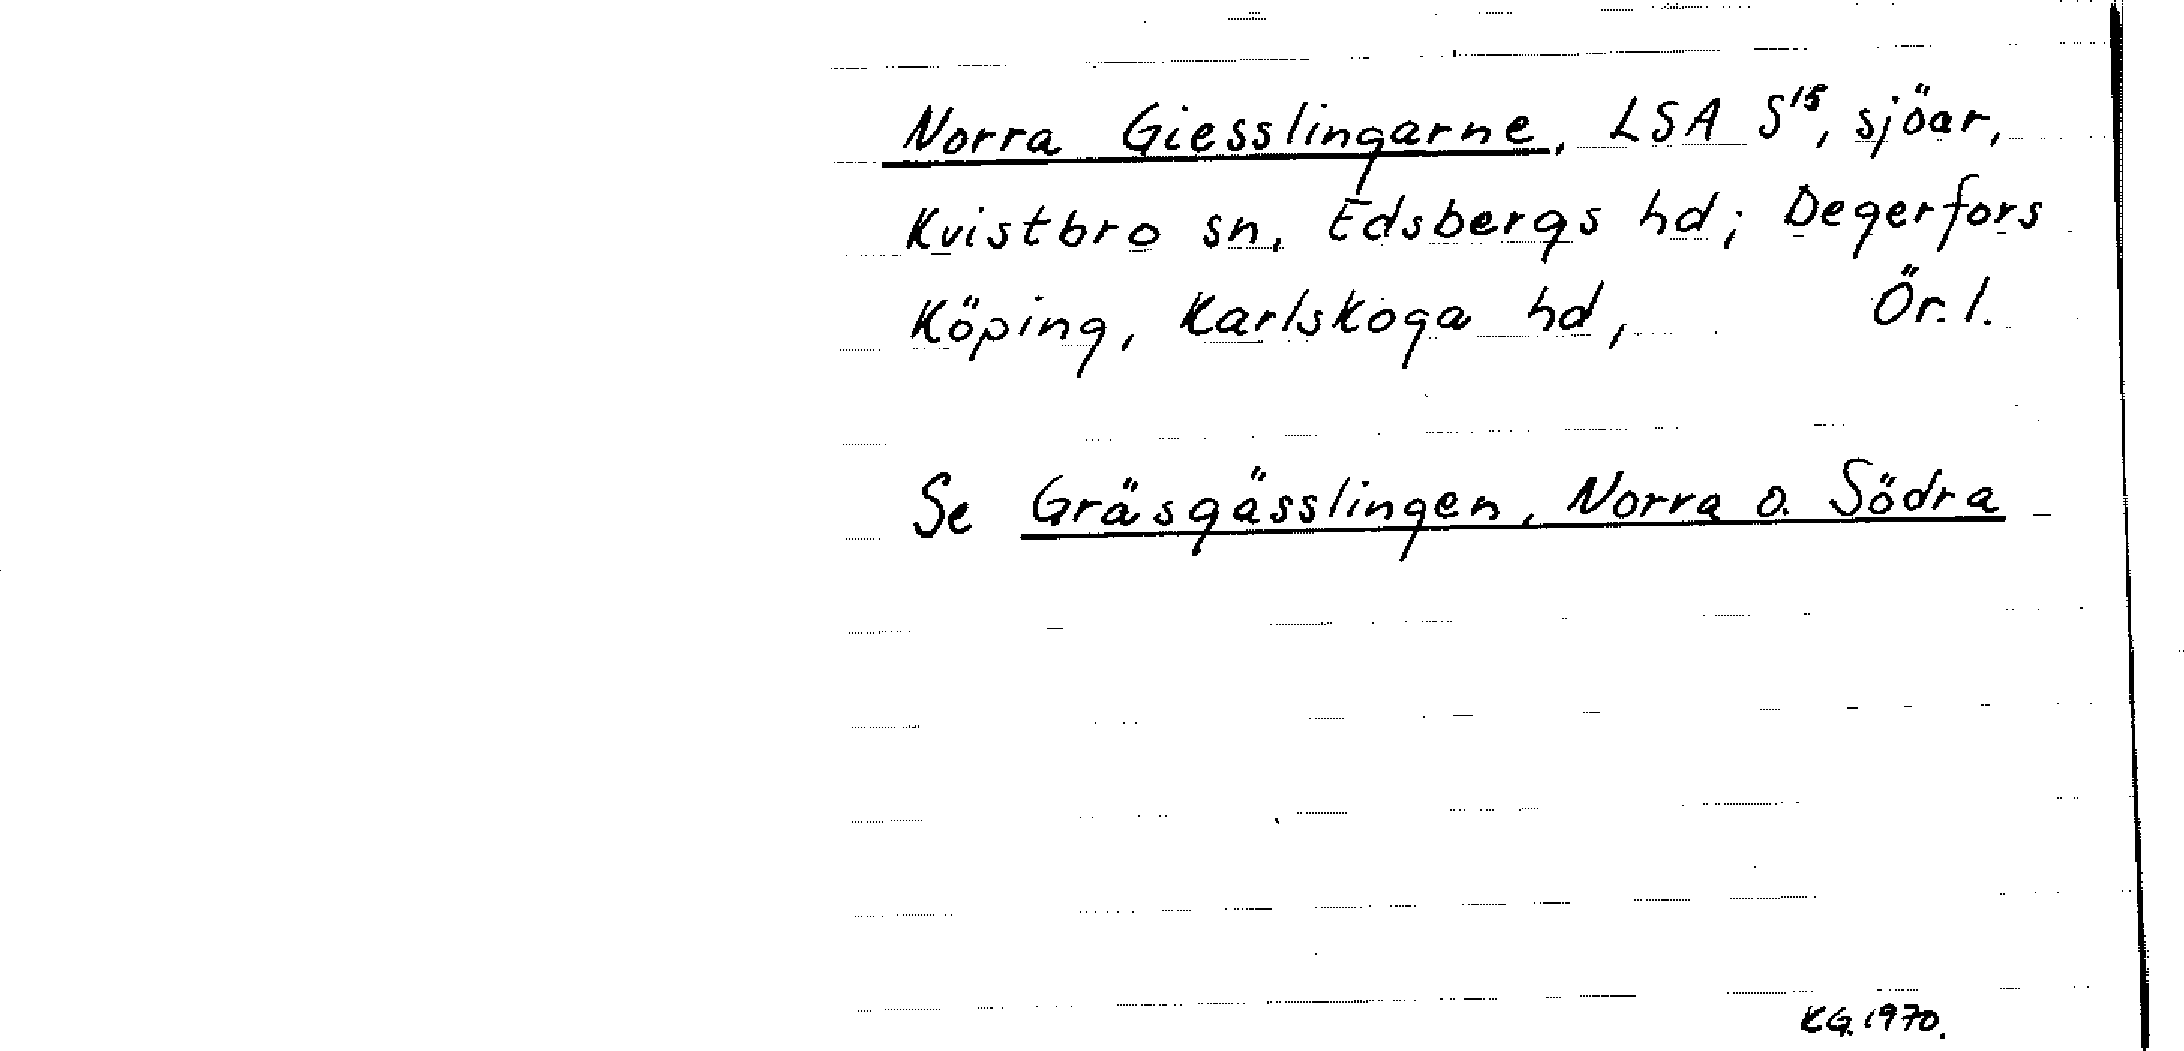 Norra Giesslingarne, LSA S¹⁵, sjöar,
Kvistbro sn, Edsbergs hd; Degerfors
Köping, Karlskoga hd, Ör. l.
Se Gräsgässlingen, Norra o. Södra
KG. 1970.